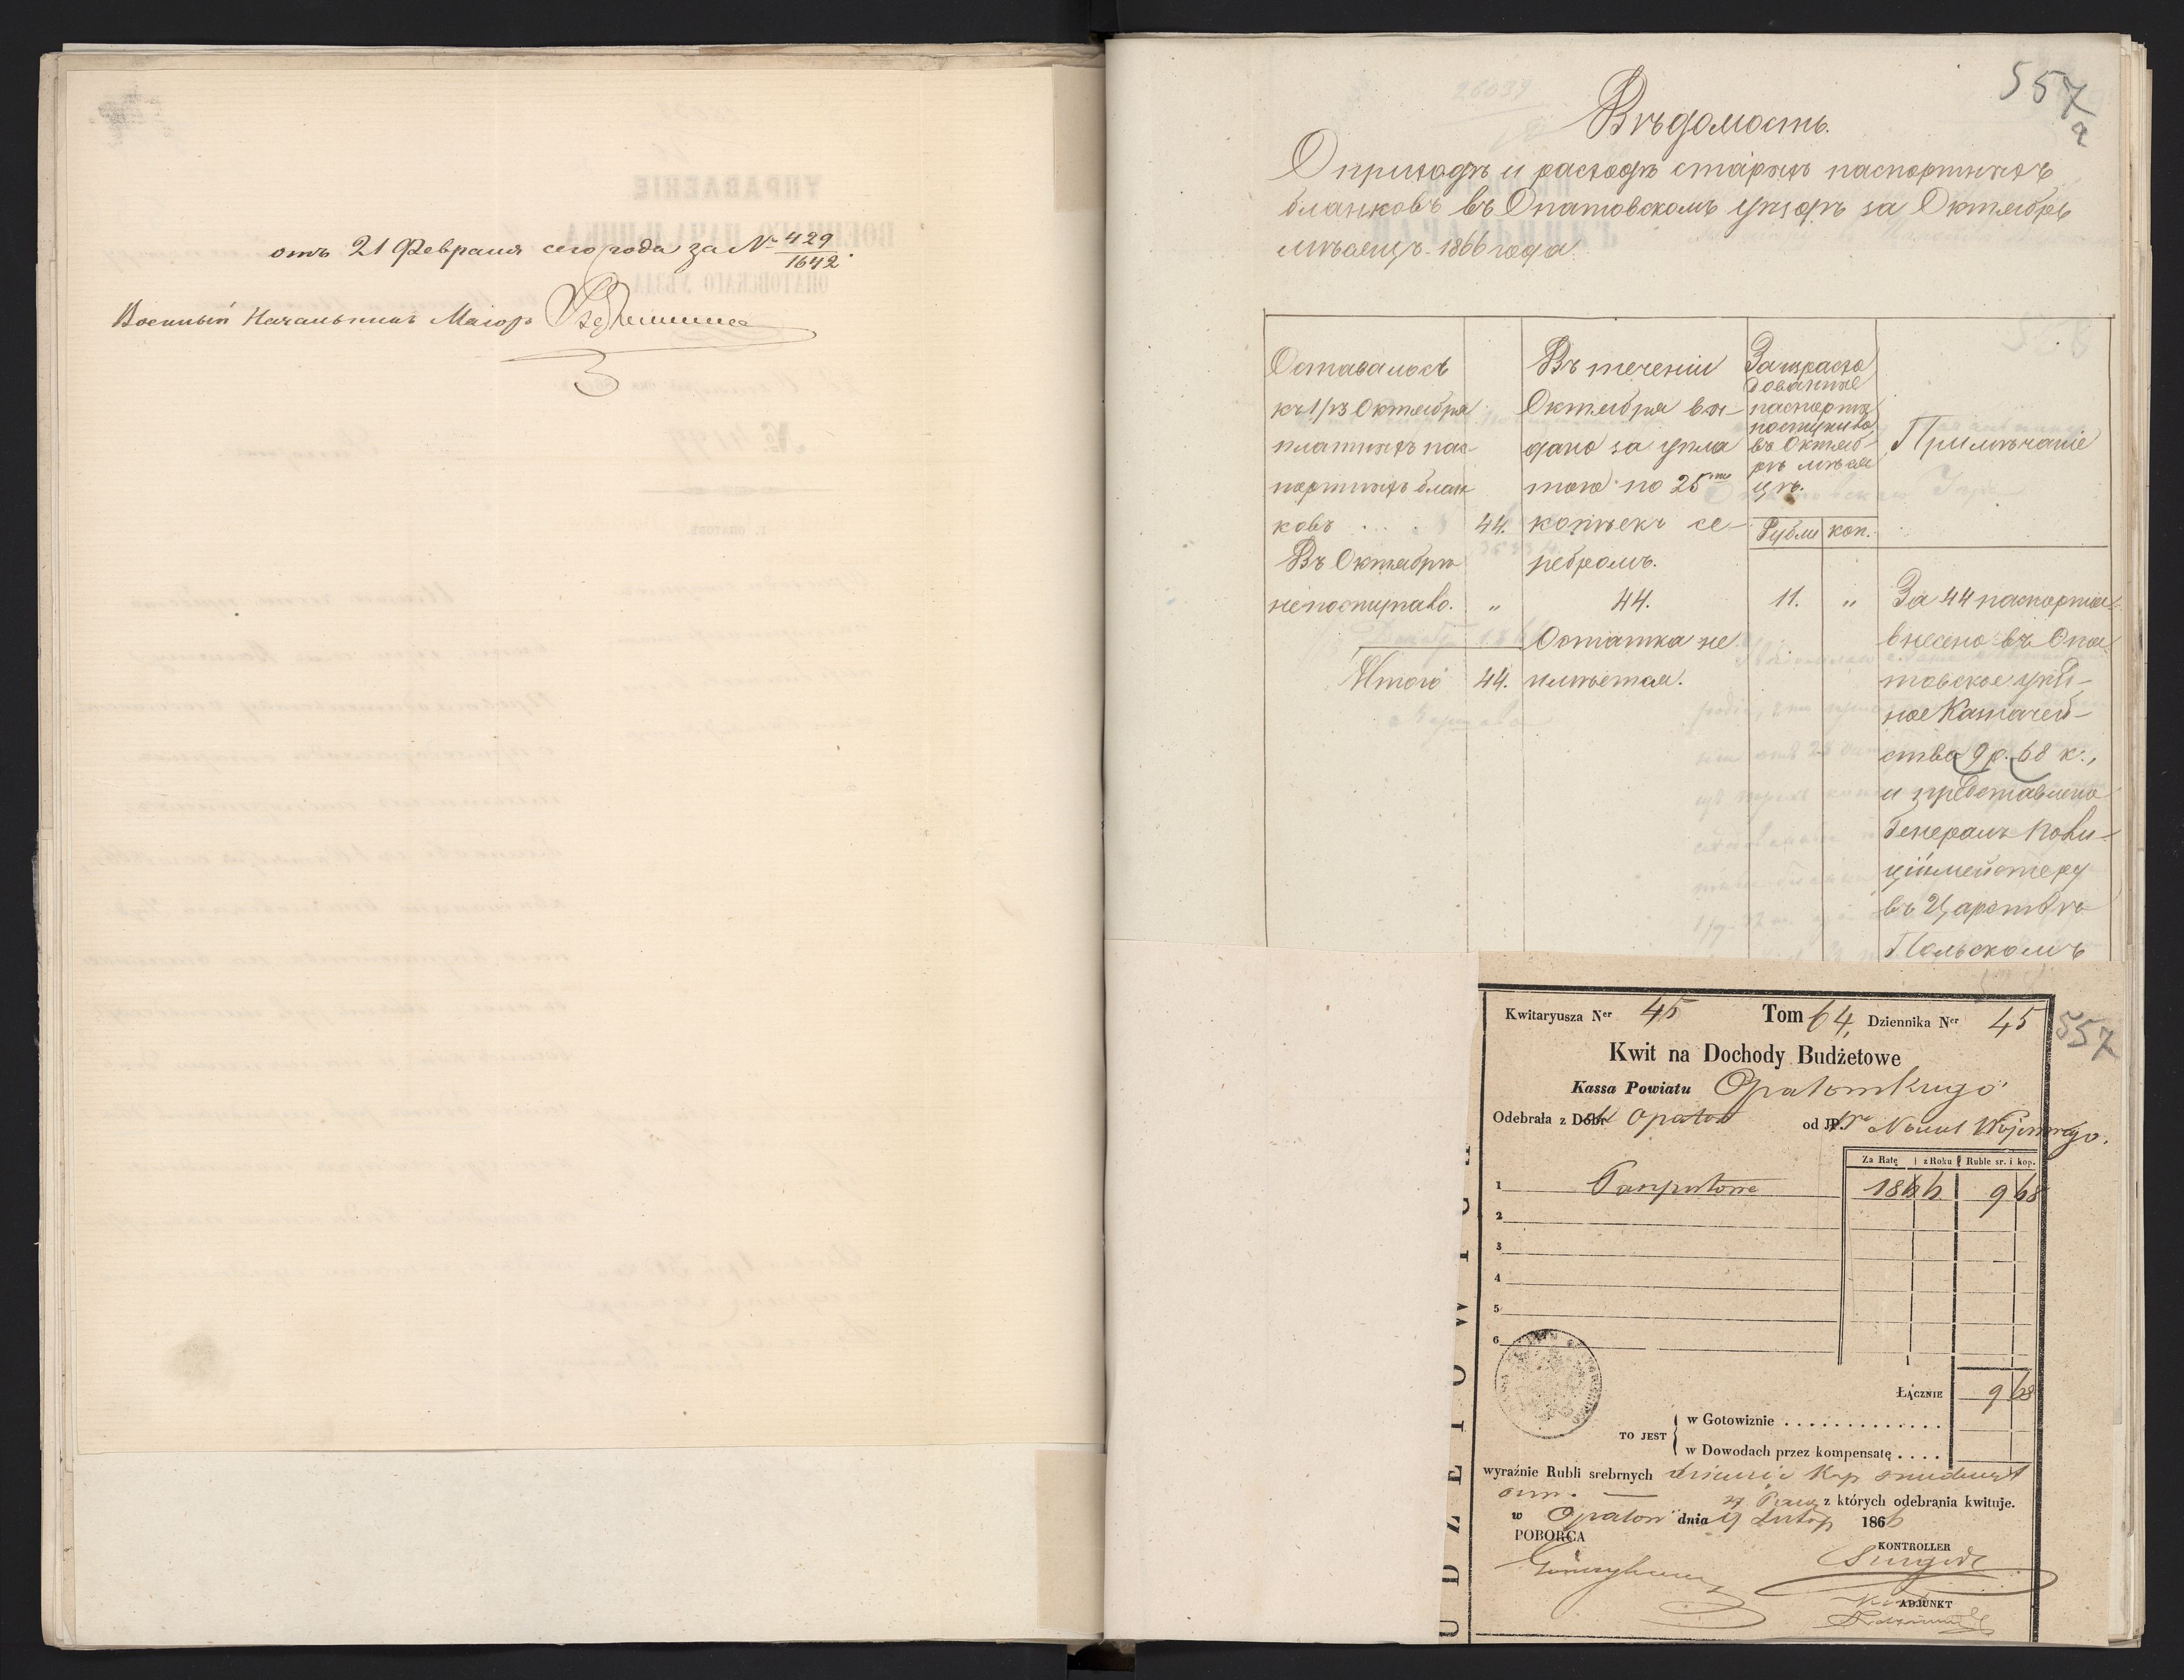 отъ 21 Февраля сего года за № 429/1642.
Военный Начальникъ Маіоръ
557
a
Вѣдомость.
О приходѣ и расходѣ старыхъ паспортныхъ
бланковъ въ Опатовскомъ уѣздѣ за Октябрь
мѣсяцъ 1866 года
Оставалось
къ 1/13 Октября
платныхъ пас-
портныхъ блан
ковъ . . . 44.
Въ Октябрѣ
непоступало. "
Итого 44.
Въ теченіи
Октября вы-
дано за упла
тою по 25ти
копѣекъ се-
ребромъ.
44.
Остатка не
имѣется.
За израсхо
дованные
паспорты
поступило
въ Октяб-
рѣ мѣся
цѣ.
Рубли коп.
11. "
Примѣчаніе
За 44 паспорта
внесено въ Опа-
товское уѣзд-
ное Казначей-
ство 9 р. 68 к.,
и представлено
Генералъ Поли-
цiймейстеру
въ Царствѣ
Польскомъ
557
Kwitaryusza Ner 45 Tom 64, Dziennika Ner 45
Kwit na Dochody Budżetowe
Kassa Powiatu Opatowskiego
Odebrała z Dóbr Opatów od JP. Naczel Wojennego.
Za Ratę z Roku Ruble sr. i kop.
1 Paszportowe 1866 9 68
2
3
4
5
6
ŁĄCZNIE 9 68
TO JEST
w Gotowiznie . . . . . . . . . . . . .
w Dowodach przez kompensatę . . . .
wyraźnie Rubli srebrnych dziewięć Kop sześćdziesiąt
ośm. z których odebrania kwituje.
w Opatow dnia Listop 1866
POBORCA
KONTROLLER
ADJUNKT